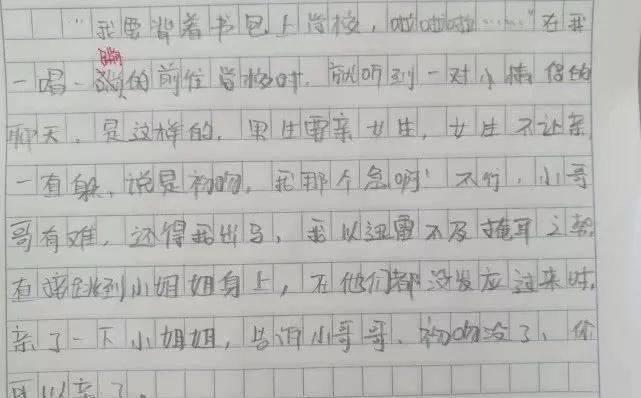 "我要背着书包上学校,啦啦啦……"在我
一唱一蹦的前往学校时,就听到一对小情侣的
聊天,是这样的,男生要亲女生,女生不让亲
一直躲,说是初吻,我那个急啊!不行,小哥
哥有难,还得我出马,我以迅雷不及掩耳之势
直接跳到小姐姐身上,在他们都没发应过来时,
亲了一下小姐姐,告诉小哥哥,初吻没了,你
可以亲了。